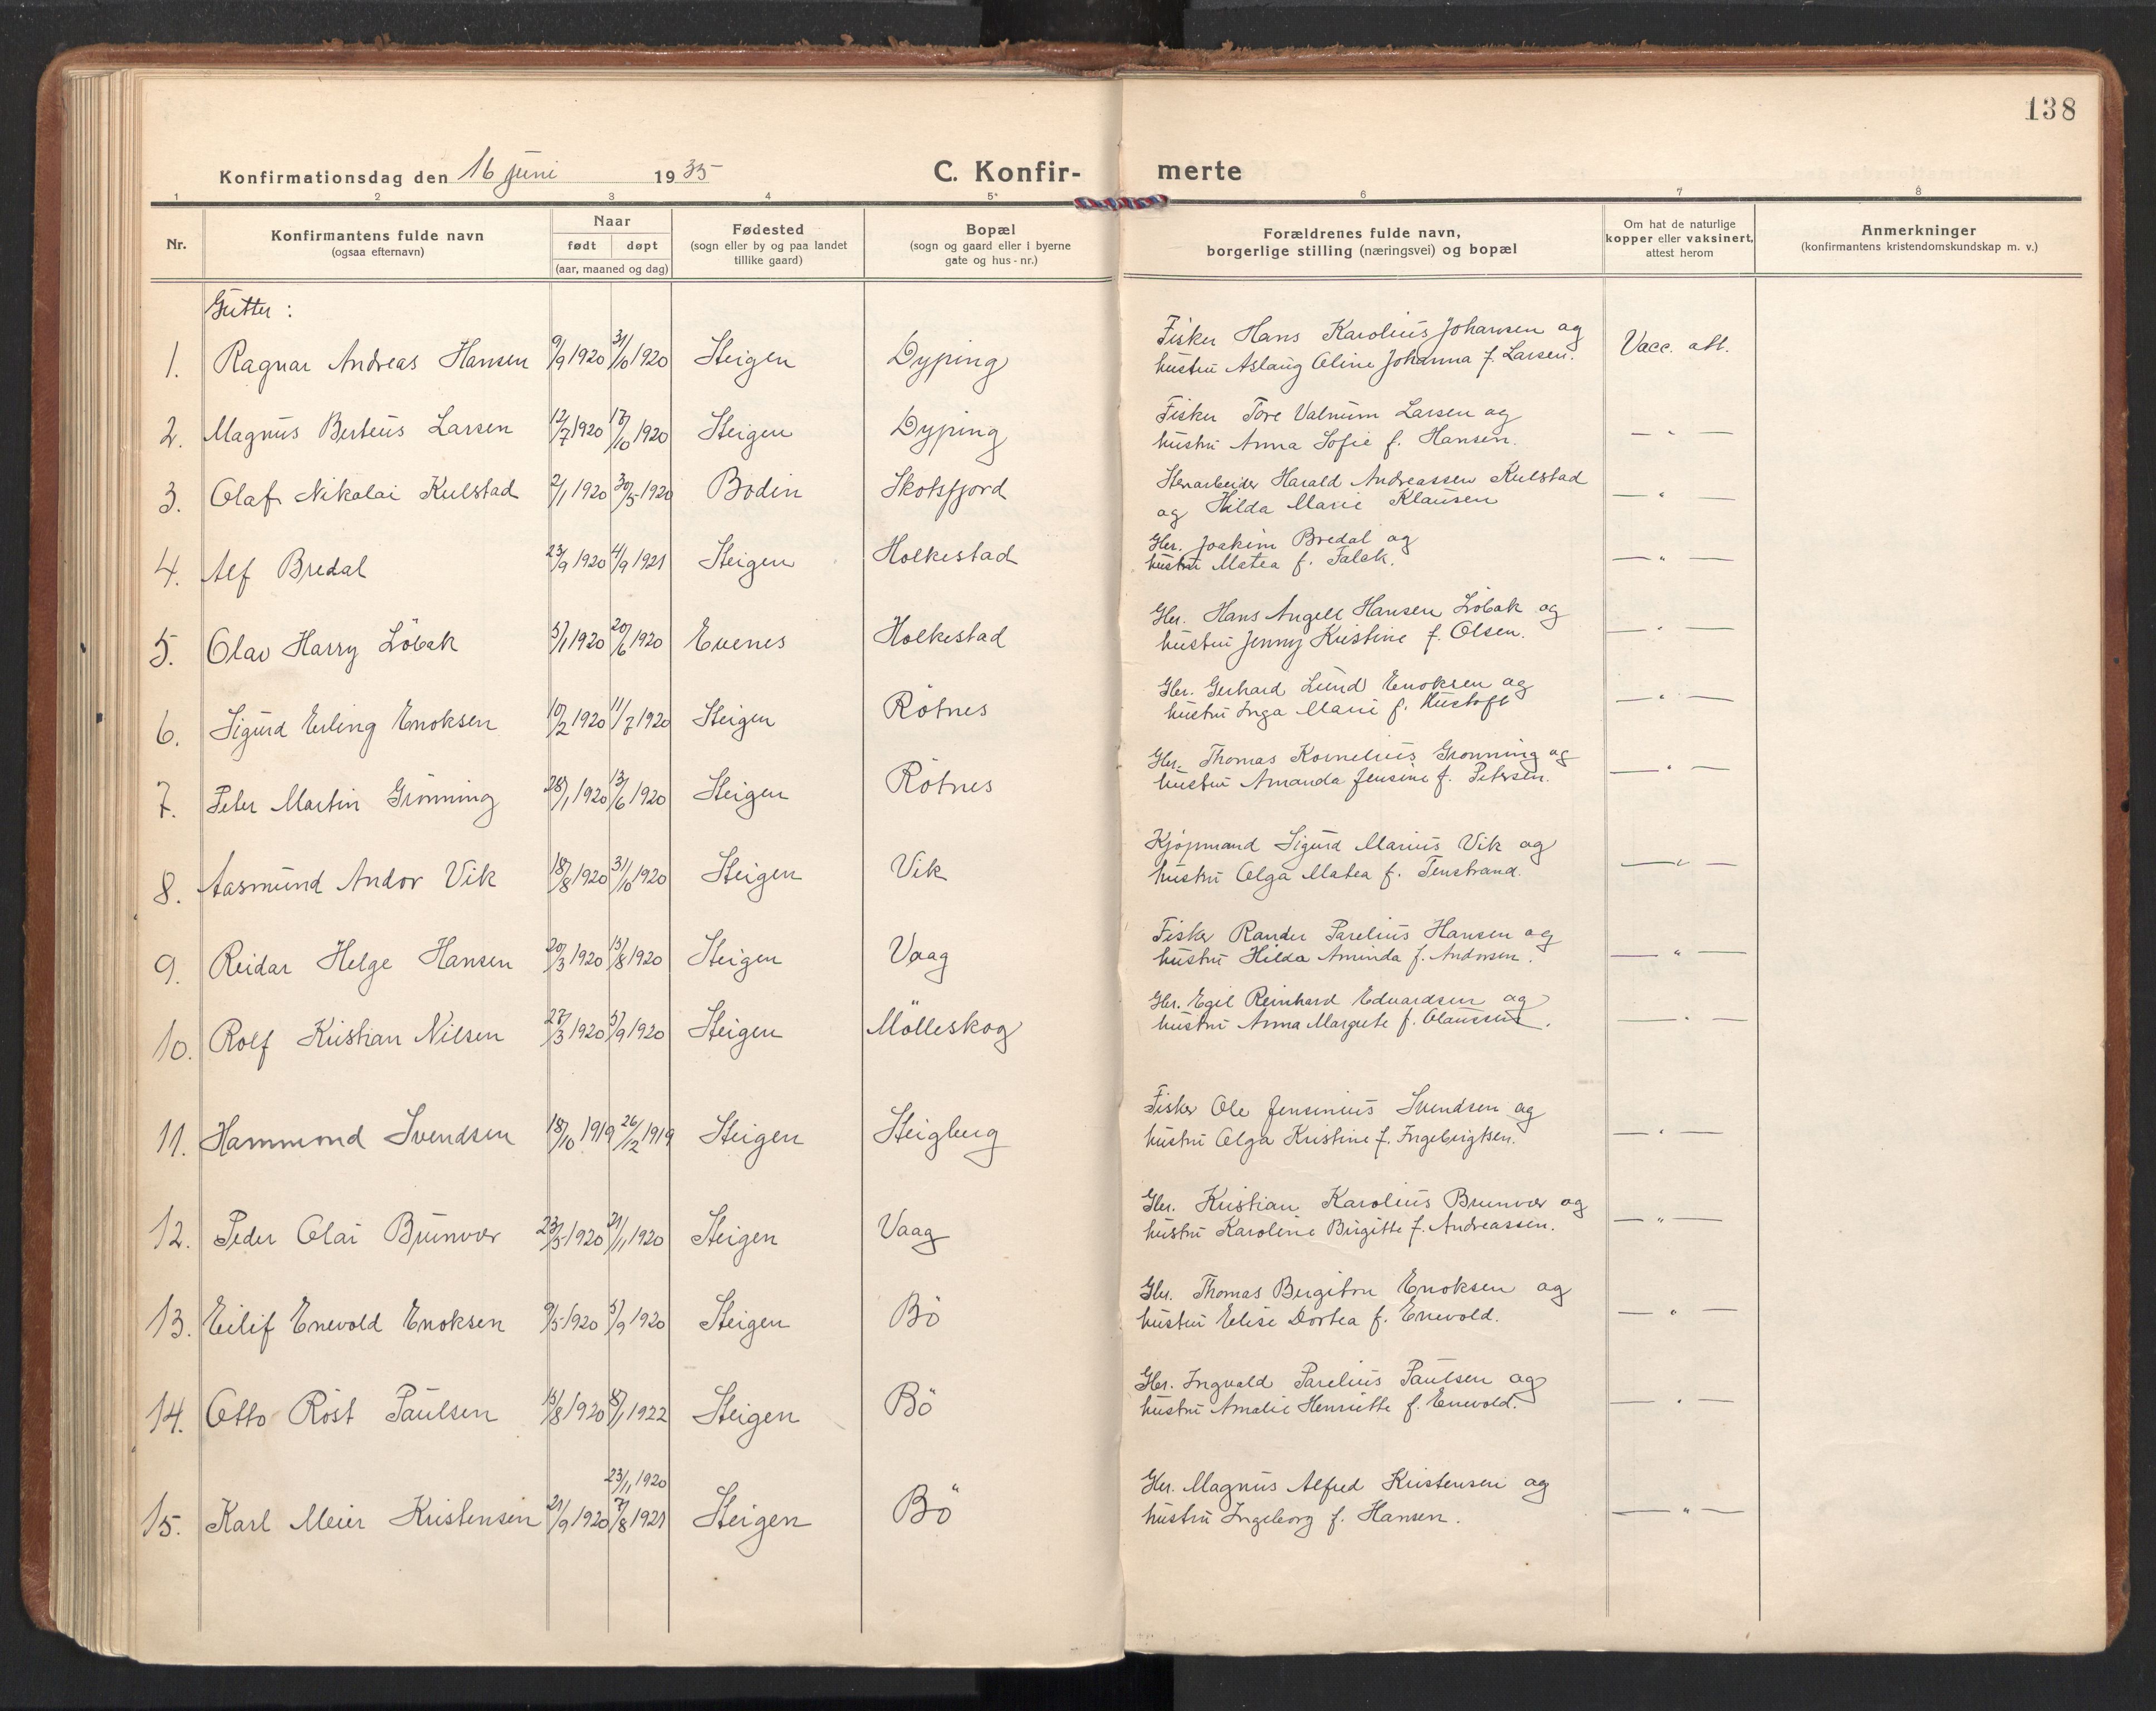 138
Konfirmationsdag den 16 juni 1935
C. Konfir- merte
1 2 3 4 5* 6 7 8
Nr.
Konfirmantens fulde navn
(ogsaa efternavn)
Naar
født døpt
(aar, maaned og dag)
Fødested
(sogn eller by og paa landet
tillike gaard)
Bopæl
(sogn og gaard eller i byerne
gate og hus-nr.)
Forældrenes fulde navn,
borgerlige stilling (næringsvei) og bopæl
Om hat de naturlige
kopper eller vaksinert,
attest herom
Anmerkninger
(konfirmantens kristendomskundskap m. v.)
Gutter :
1. Ragnar Andreas Hansen 9/9 1920 31/10 1920 Steigen Dyping Fisker Hans Karolius Johansen og
hustru Aslaug Oline Johanna f. Larsen. Vacc. att.
2. Magnus Berteus Larsen 12/7 1920 17/10 1920 Steigen Dyping Fisker Tore Valnum Larsen og
hustru Anna Sofie f. Hansen. — " —
3. Olaf Nikolai Kulstad 2/1 1920 30/5 1920 Bodin Skotsfjord Stenarbeider Harald Andreassen Kulstad
og Hilda Marie Klausen — " —
4. Alf Bredal 23/9 1920 4/9 1921 Steigen Holkestad Gbr. Joakim Bredal og
hustru Matea f. Falak. — " —
5. Olav Harry Löbak 5/1 1920 20/6 1920 Evenes Holkestad Gbr. Hans Angell Hansen Löbak og
hustru Jenny Kristine f. Olsen. — " —
6. Sigurd Erling Enoksen 10/2 1920 11/7 1920 Steigen Rötnes Gbr. Gerhard Lund Enoksen og
hustru Inga Marie f. Hustoft — " —
7. Peter Martin Grönning 28/1 1920 13/6 1920 Steigen Rötnes Gbr. Thomas Kornelius Grönning og
hustru Amanda Jensine f. Petersen. — " —
8. Aasmund Andor Vik 18/8 1920 31/10 1920 Steigen Vik Kjöpmand Sigurd Marius Vik og
hustru Olga Matea f. Tenstrand. — " —
9. Reidar Helge Hansen 20/3 1920 15/8 1920 Steigen Vaag Fisker Rander Parelius Hansen og
hustru Hilda Aminda f. Andorsen. — " —
10. Rolf Kristian Nilsen 27/3 1920 5/9 1920 Steigen Mölleskog Gbr. Egil Reinhard Edvardsen og
hustru Anna Margrete f. Olaussen. — " —
11. Hammond Svendsen 18/10 1919 26/12 1919 Steigen Steigberg Fisker Ole Jensinius Svendsen og
hustru Olga Kristine f. Ingebrigtsen. — " —
12. Peder Olai Brunvær 23/5 1920 21/11 1920 Steigen Vaag Gbr. Kristian Karolius Brunvær og
hustru Karoline Birgitte f. Andreassen. — " —
13. Eilif Enevold Enoksen 9/5 1920 5/9 1920 Steigen Bö Gbr. Thomas Bergiton Enoksen og
hustru Elise Dortea f. Enevold. — " —
14. Otto Röst Paulsen 15/8 1920 8/1 1922 Steigen Bö Gbr. Ingvald Parelius Paulsen og
hustru Amalie Henriette f. Enevold. — " —
23/11 1920
15. Karl Meier Kristensen 21/9 1920 7/8 1921 Steigen Bö Gbr. Magnus Alfred Kristensen og
hustru Ingeborg f. Hansen. — " —